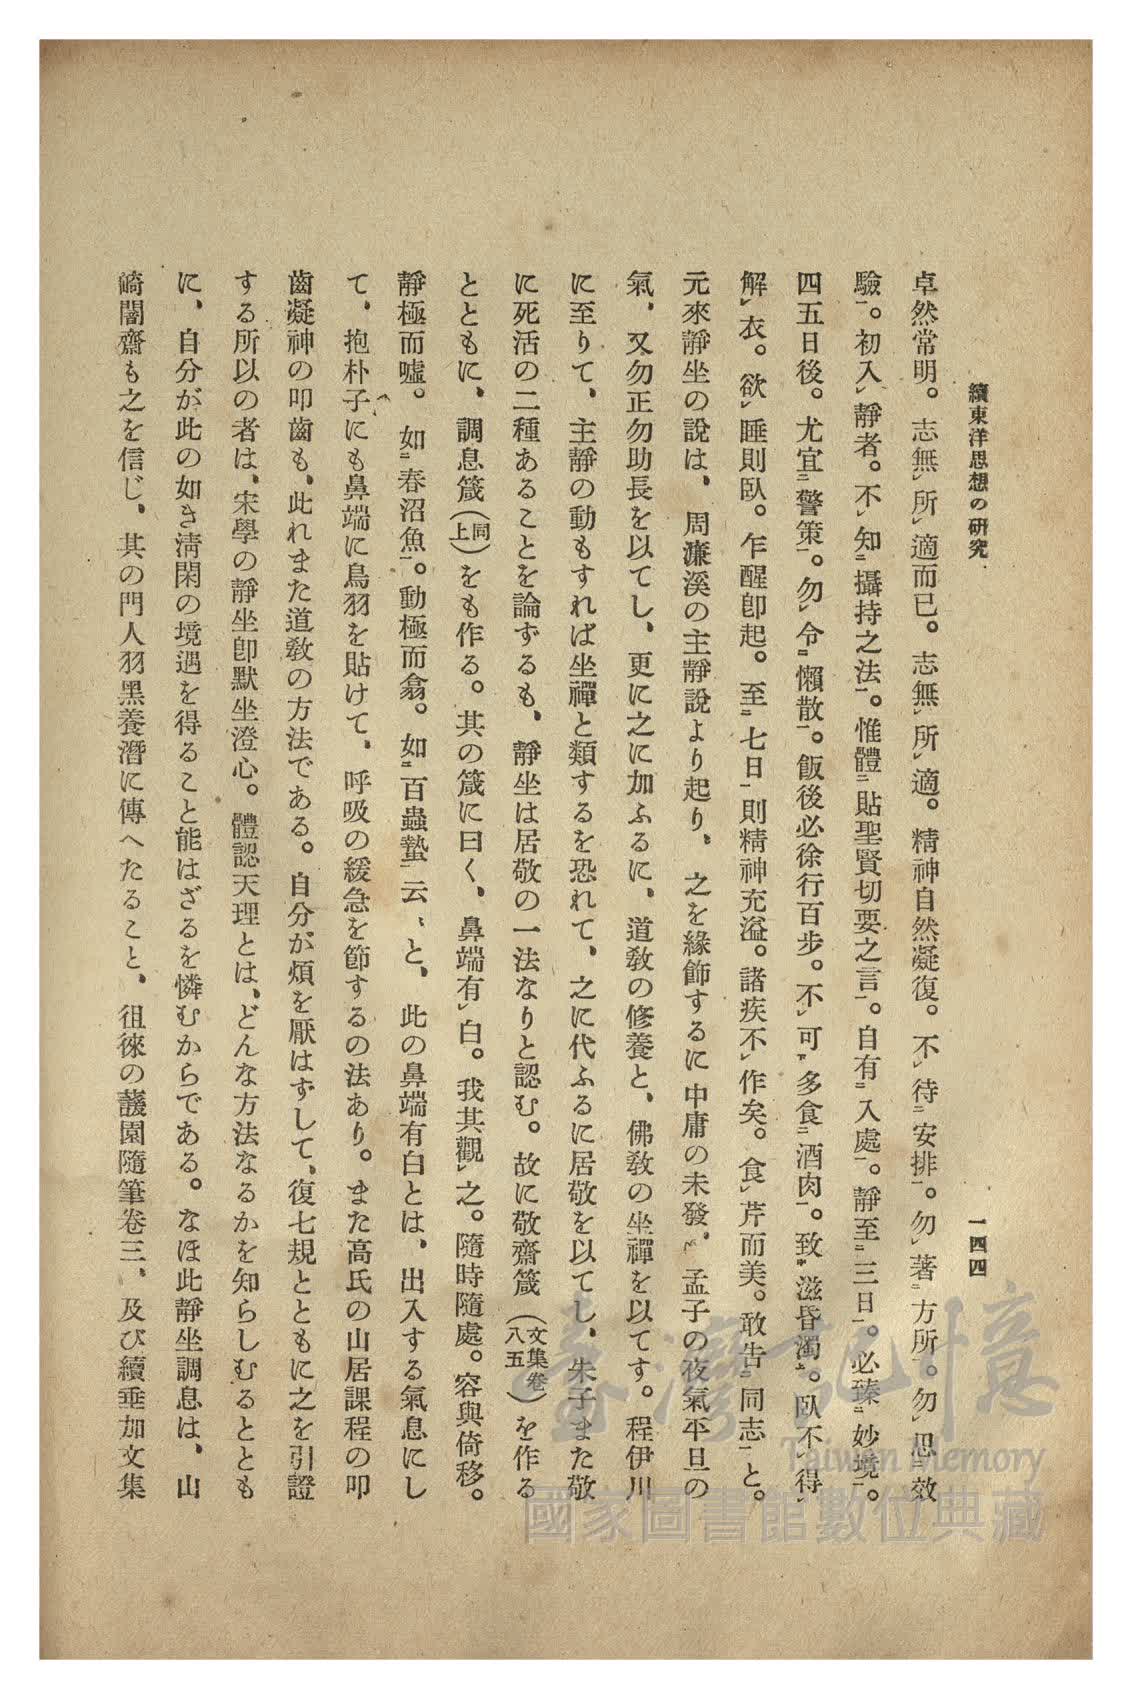 續東洋思想の研究
一四四
卓然常明。志無㆑所㆑適而已。志無㆑所㆑適。精神自然凝復。不㆑待㆓安排㆒。勿㆑著㆓方所㆒。勿㆑思㆓效
驗㆒。初入㆑靜者。不㆑知㆓攝持之法㆒。惟體㆓貼聖賢切要之言㆒。自有㆓入處㆒。靜至㆓三日㆒。必臻㆓妙境㆒。
四五日後。尤宜㆓警策㆒。勿㆑令㆓懶散㆒。飯後必徐行百步。不㆑可㆘多食㆓酒肉㆒。致㆗滋昏濁㆖。臥不㆑得㆑
解㆑衣。欲㆑睡則臥。乍醒卽起。至㆓七日㆒則精神充溢。諸疾不㆑作矣。食㆑芹而美。敢吿㆓同志㆒と。
元來靜坐の說は、周濂溪の主靜說より起り、之を緣飾するに中庸の未發、孟子の夜氣平旦の
氣、又勿正勿助長を以てし、更に之に加ふるに、道敎の修養と、佛敎の坐禪を以てす。程伊川
に至りて、主靜の動もすれば坐禪と類するを恐れて、之に代ふるに居敬を以てし、朱子また敬
に死活の二種あることを論ずるも、靜坐は居敬の一法なりと認む。故に敬齋箴（文集卷八五）を作る
とともに、調息箴（同上）をも作る。其の箴に曰く、鼻端有㆑白。我其觀㆑之。隨時隨處。容與倚移。
靜極而噓。如㆓春沼魚㆒。動極而翕。如㆓百蟲蟄㆒云〻と、此の鼻端有白とは、出入する氣息にし
て、抱朴子にも鼻端に鳥羽を貼けて、呼吸の緩急を節するの法あり。また高氏の山居課程の叩
齒凝神の叩齒も、此れまた道敎の方法である。自分が煩を厭はずして、復七規とともに之を引證
する所以の者は、宋學の靜坐卽默坐澄心。體認天理とは、どんな方法なるかを知らしむるととも
に、自分が此の如き淸閑の境遇を得ること能はざるを憐むからである。なほ此靜坐調息は、山
崎闇齋も之を信じ、其の門人羽黑養潛に傳へたること、徂徠の蘐園隨筆卷三、及び續垂加文集
臺灣記憶
Taiwan Memory
國家圖書館數位典藏